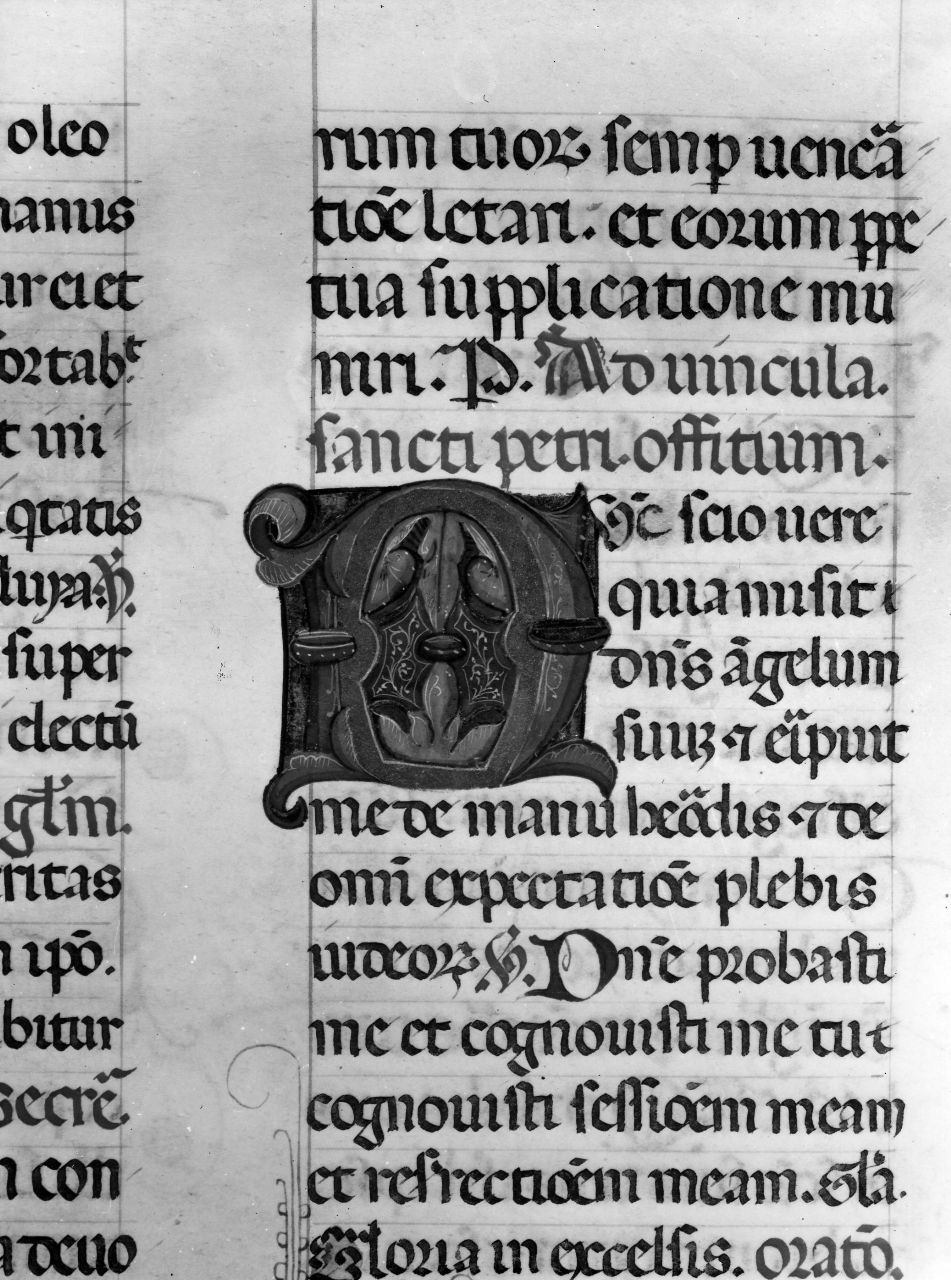 oleo
manus
urciet
fortabt̄
t mi
qtatis
luya. V̄.
super
electū
głm.
ritas
n ip̄o.
bitur
Secrẽ.
n con
a deuo
rum tuoꝝ semp uenẽa
tiōe letari. et eorum ppe
tua supplicatione mu
niri. P. Ad uincula.
sancti petri. offitium.
Nc̄ scio uere
quia misit
dn̄s āgelum
suuꝫ ⁊ eripuit
me de manu herodis ⁊ de
om̄i expectatiōe plebis
iudeoꝝ V̄. Dn̄e probasti
me et cognouisti me tu
cognouisti sessiōem meam
et resrectiōem meam. Gła.
Gloria in excelsis. Oratō.